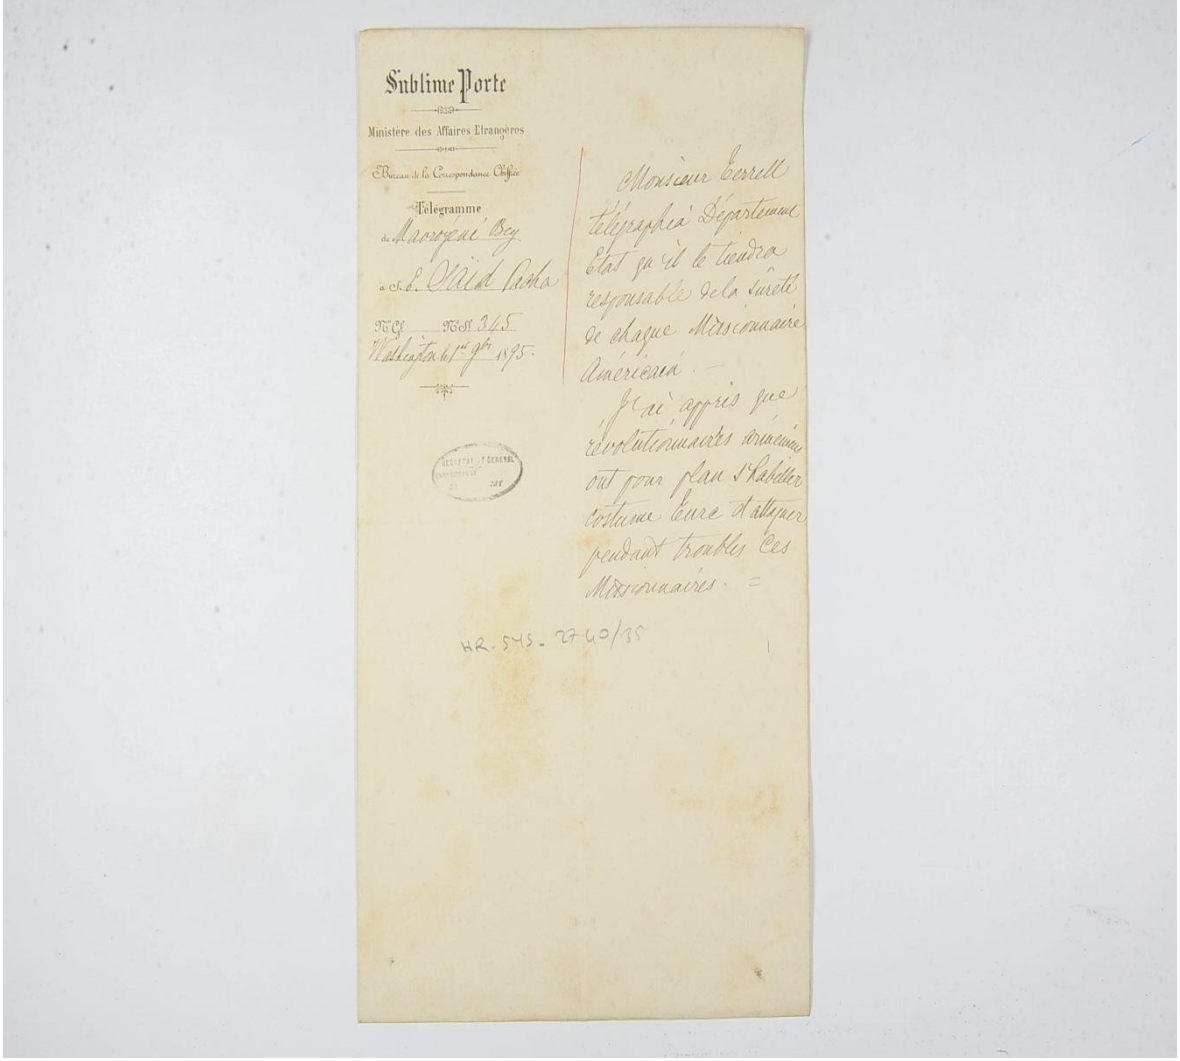 Sublime Porte
Ministère des Affaires Etrangères
Bureau de la Correspondance Chiffrée
Télégramme
de Mavroyéni Bey
à S. E. Saïd Pacha
N.Gl N.Sl 345
Washington le 1er 9bre 1895.
Monsieur Terrell
télégraphia Département
Etat qu'il le tiendra
responsable de la sûreté
de chaque Missionnaire
Américain. —
J'ai appris que
révolutionnaires arméniens
ont pour plan s'habiller
costume turc d'attaquer
pendant troubles ces
Missionnaires. =
GENERAL
HR. SYS. 2740/35